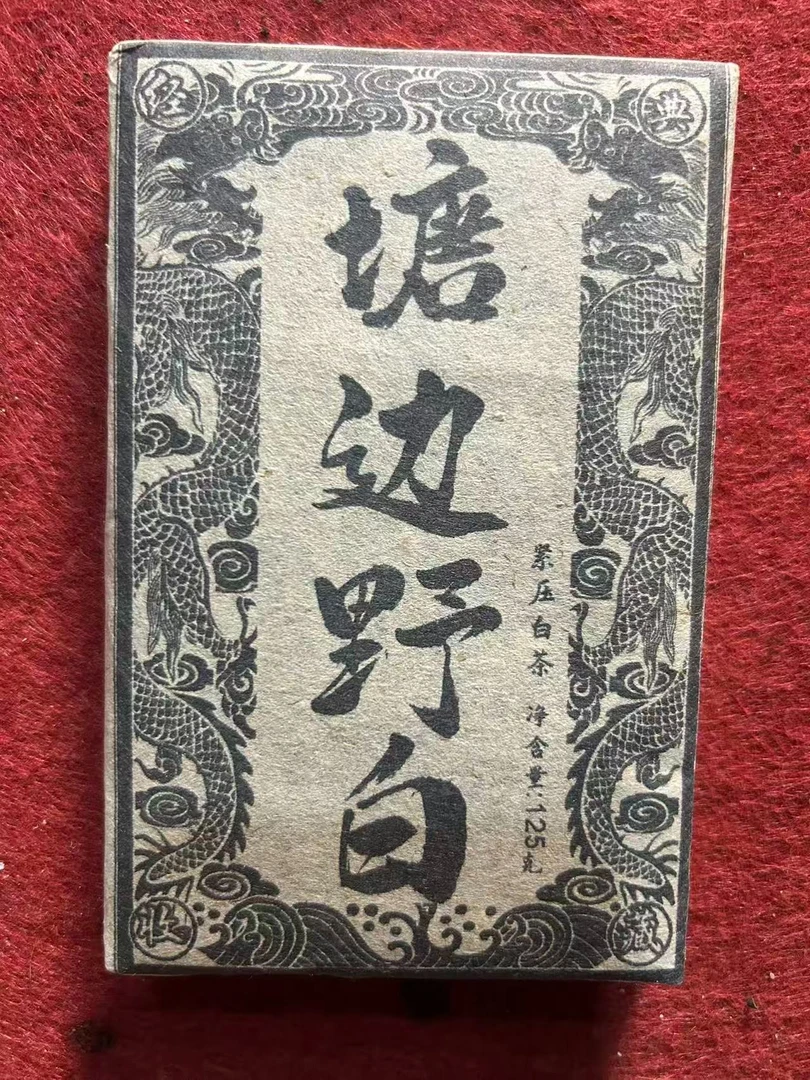 经典
塘边野白
紧压白茶 净含量:125克
收藏